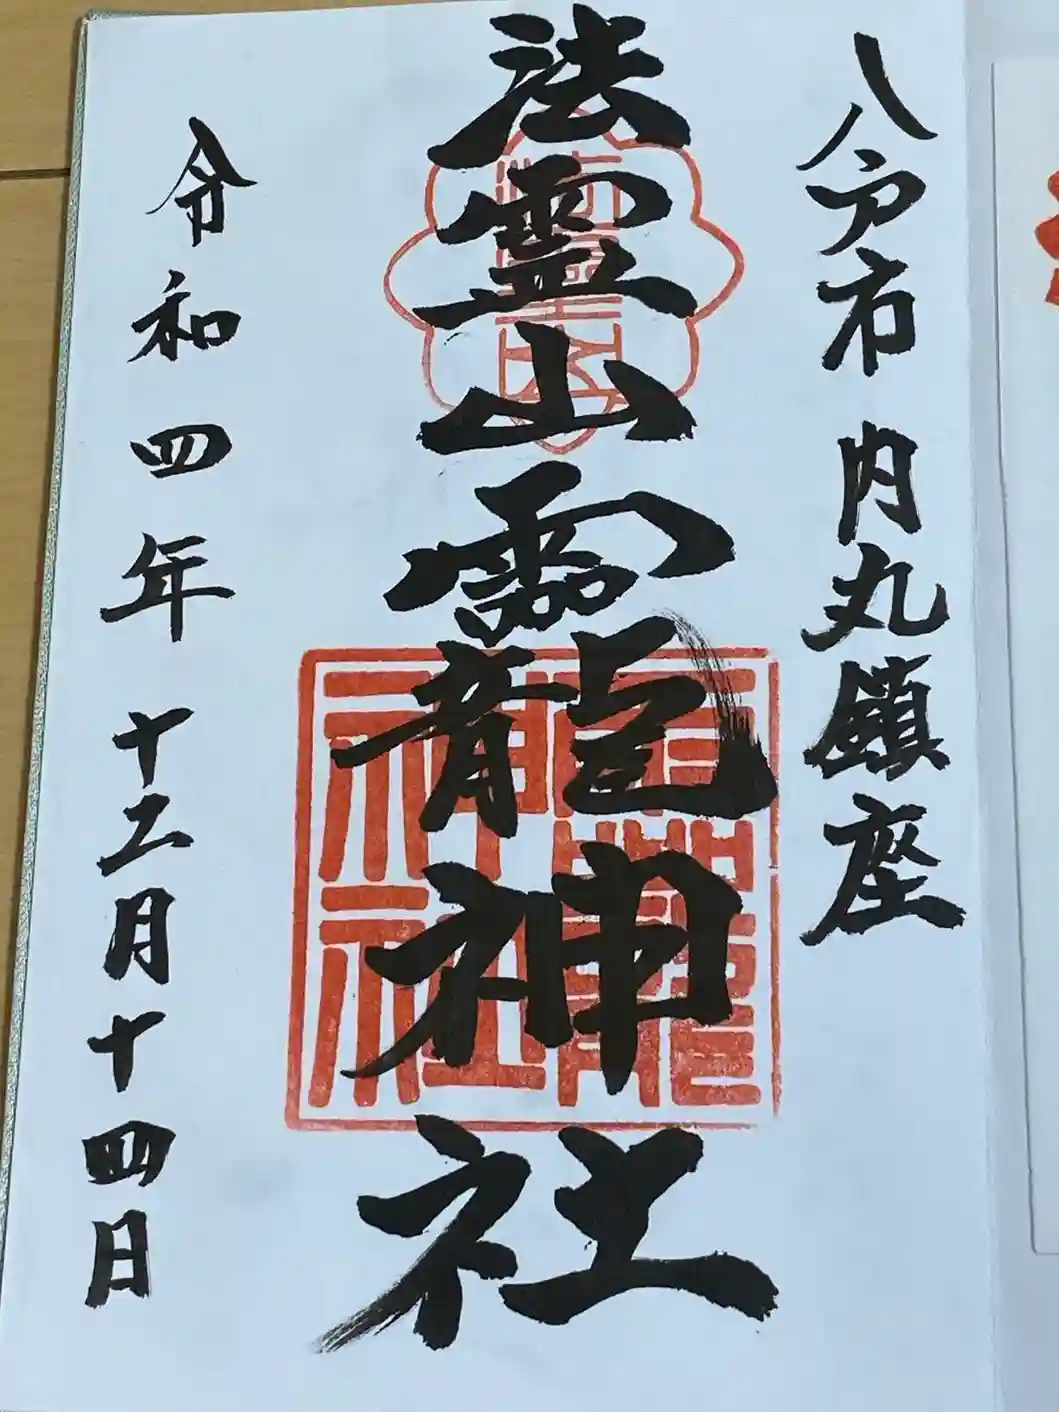 八戸市内丸鎮座
法霊山龗神社
令和四年十二月十四日
龗神社